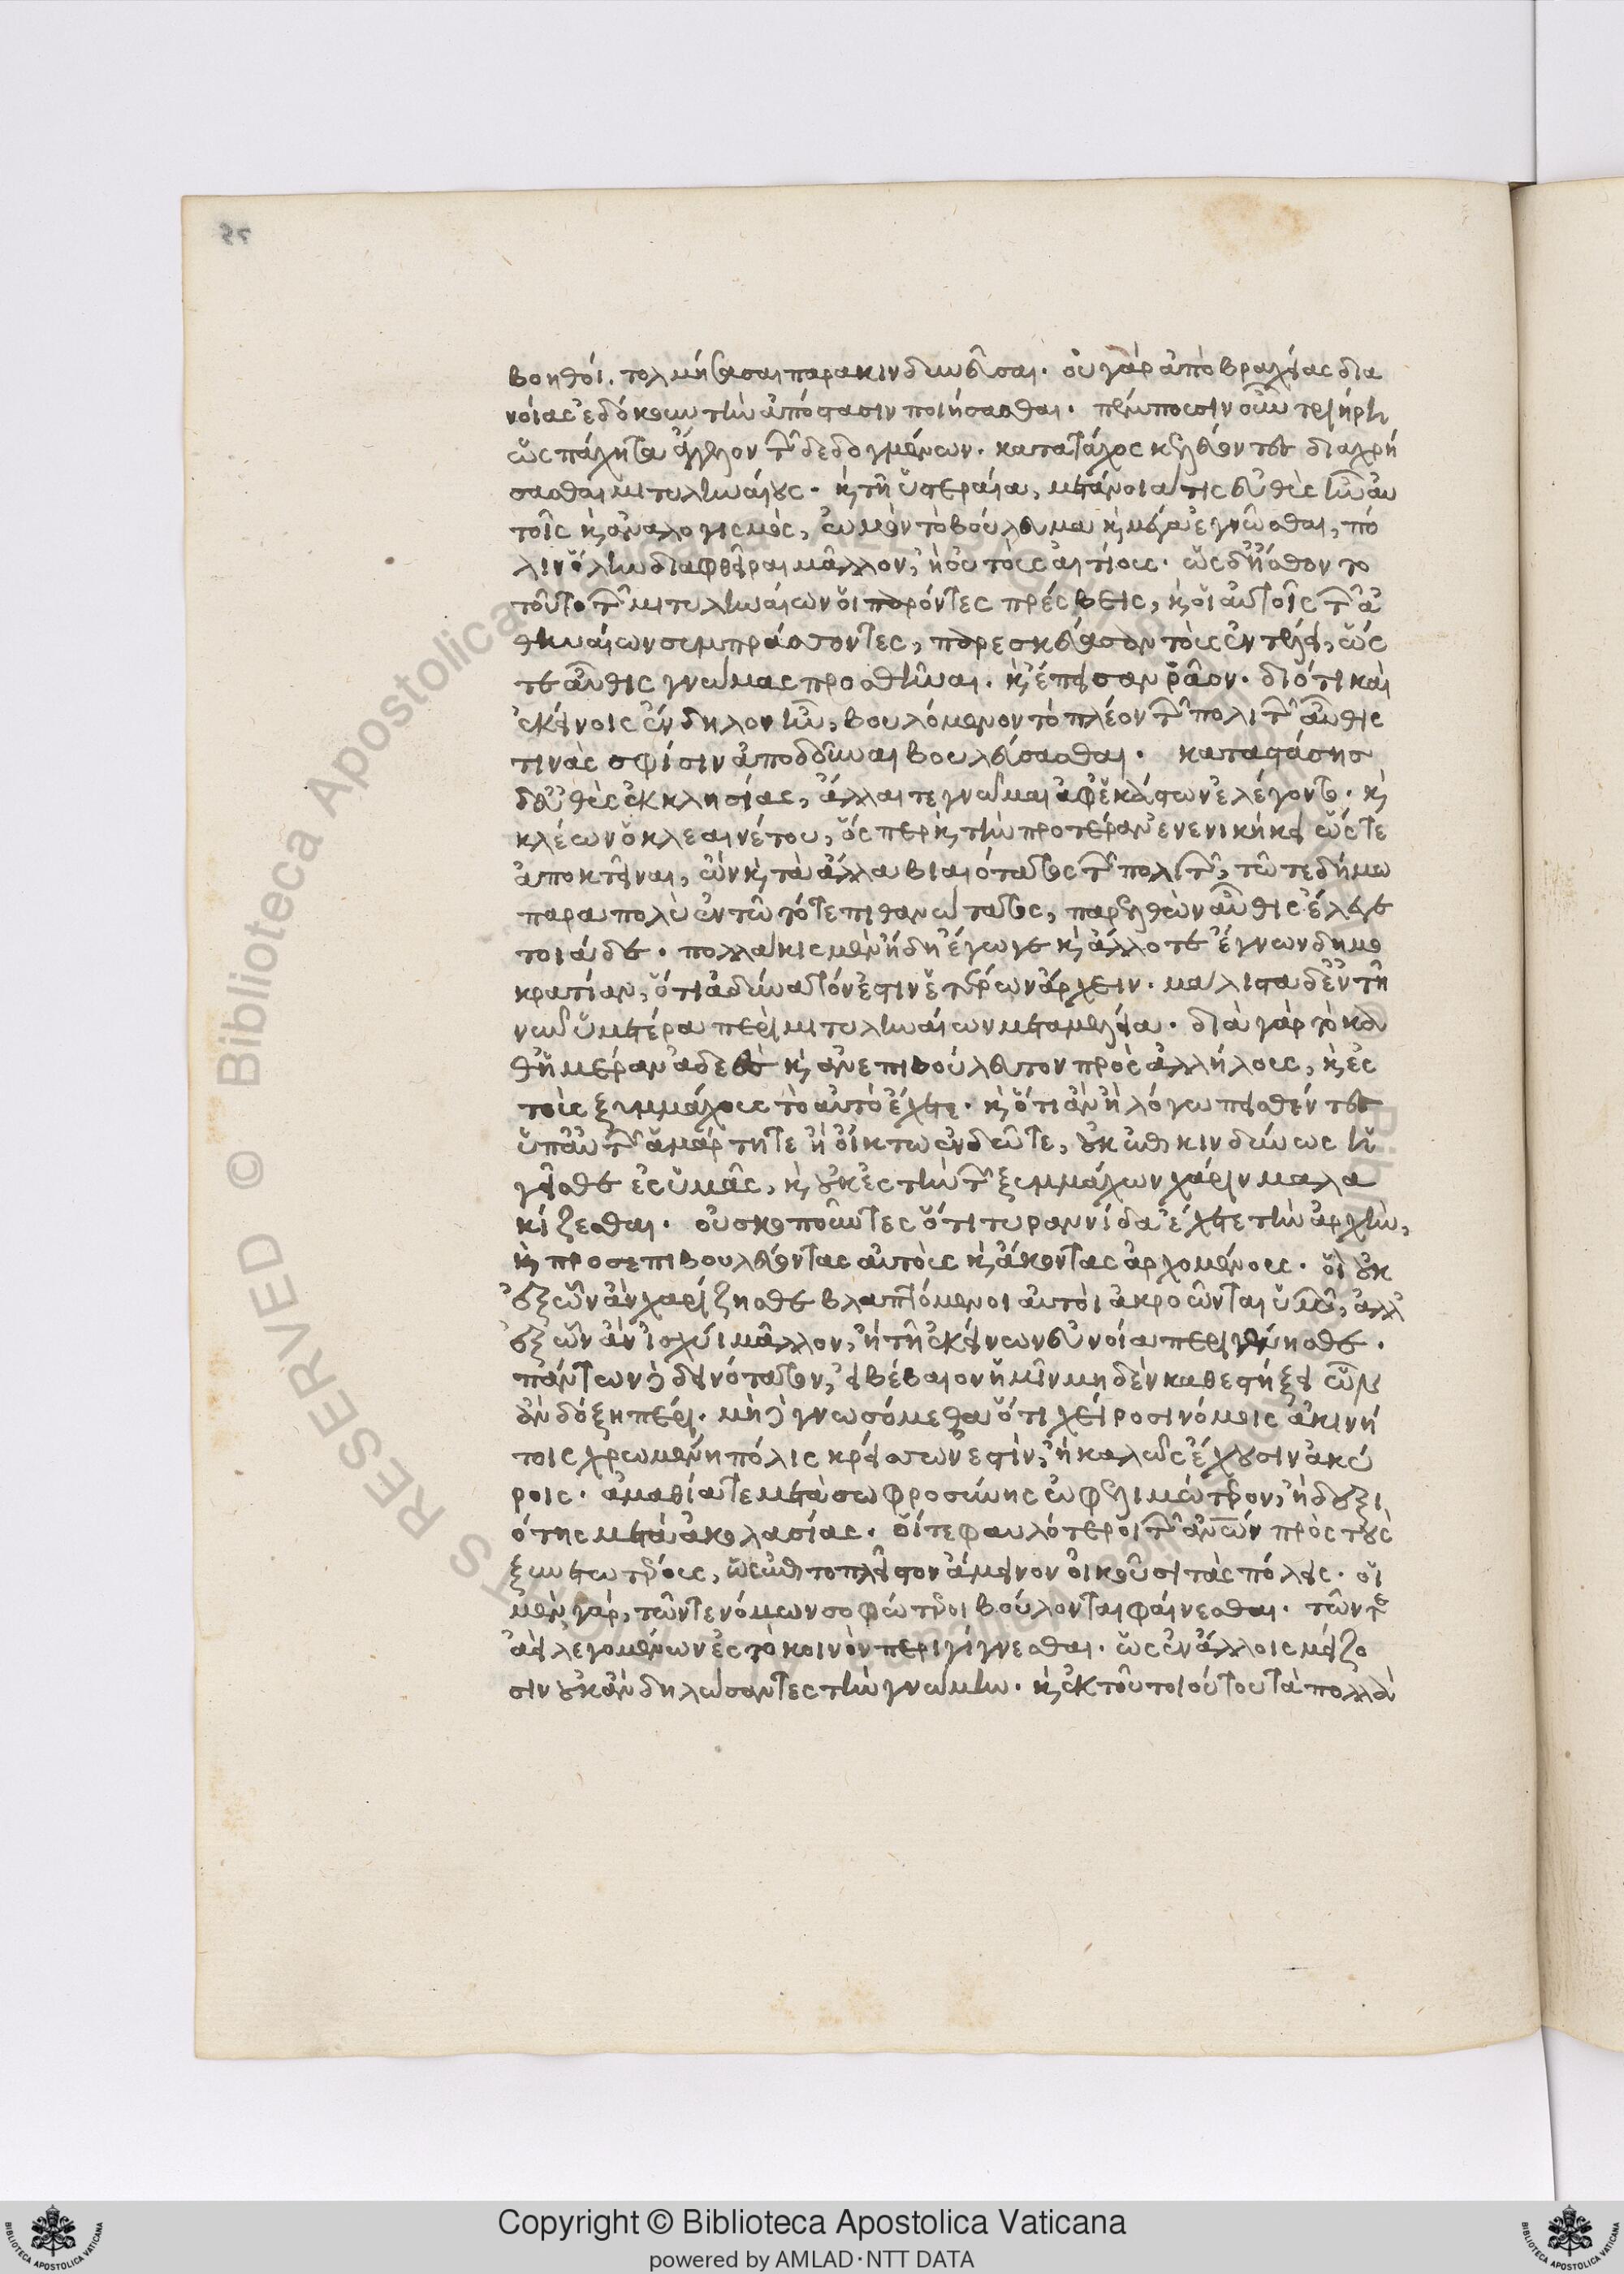 βοηθοί. τολμήσασαι παρακινδυνεῦσαι· οὐ γὰρ ἀπὸ βραχείας δια
νοίας ἐδόκουν τὴν ἀπόστασιν ποιήσασθαι· πέμπουσιν οὖν τριήρη
ὡς πάχητα ἄγγελον τῶν δεδογμένων. κατατάχος κελεύοντες διαχρή
σασθαι μιτυληναίους· καὶ τῇ ὑστεραία, μετάνοιά τις εὐθὺς ἦν αὐ
τοῖς καὶ ἀναλογισμὸς, ὠμὸν τὸ βούλευμα καὶ μέγα ἐγνῶσθαι, πό
λιν ὅλην διαφθεῖραι μᾶλλον, ἢ οὐ τοὺς αἰτίους· ὡς δ' ἤσθοντο
τοῦτο τῶν μιτυληναίων οἱ παρόντες πρέσβεις, καὶ οἱ αὐτοῖς τῶν ἀ
θηναίων συμπράσσοντες, παρεσκεύασαν τοὺς ἐν τέλει, ὥς
τε αὖθις γνώμας προθεῖναι. καὶ ἔπεισαν ῥᾶον. διότι καὶ
ἐκείνοις ἔνδηλον ἦν, βουλόμενον τὸ πλέον τῶν πολιτῶν αὖθις
τινὰς σφίσιν ἀποδοῦναι βουλεύσασθαι. καταστάσης
δ' εὐθὺς ἐκκλησίας, ἄλλαι τε γνῶμαι ἀφ' ἑκάστων ἐλέγοντο. καὶ
κλέων ὁ κλεαινέτου, ὅσπερ καὶ τὴν προτέραν ἐνενικήκει ὥστε
ἀποκτεῖναι, ὢν καὶ τὰ ἄλλα βιαιότατος τῶν πολιτῶν, τῶ τε δήμω
παρα πολὺ ἐν τῶ τότε πιθανώτατος, παρελθὼν αὖθις ἔλεγε
τοιάδε. πολλάκις μὲν ἤδη ἔγωγε καὶ ἄλλοτε ἔγνων δημο
κρατίαν, ὅτι ἀδύνατόν ἐστιν ἑτέρων ἄρχειν. μάλιστα δ' ἐν τῇ
νῦν ὑμετέρα περὶ μιτυληναίων μεταμελεία. διὰ γὰρ τὸ κα
θ' ἡμέραν ἀδεὲς καὶ ἀνεπιβούλευτον πρὸς ἀλλήλους, καὶ ἐς
τοὺς ξυμμάχους τὸ αὐτὸ ἔχετε. καὶ ὅτι ἂν ἢ λόγω πεισθέντες
ὑπ' αὐτῶν ἁμάρτητε ἢ οἴκτω ἐνδῶτε, οὐκ ἐπικινδύνως ἡ
γεῖσθε ἐς ὑμᾶς, καὶ οὐκ ἐς τὴν τῶν ξυμμάχων χάριν μαλα
κίζεσθαι. οὐ σκοποῦντες ὅτι τυραννίδα ἔχετε τὴν ἀρχὴν,
καὶ προσεπιβουλεύοντας αὐτοὺς καὶ ἄκοντας ἀρχομένους. οἳ οὐκ
ἐξ ὧν ἂν χαρίζησθε βλαπτόμενοι αὐτοὶ ἀκροῶνται ὑμῶν, ἀλλ'
ἐξ ὧν ἂν ἰσχύι μᾶλλον, ἢ τῇ ἐκείνων εὐνοία περιγένησθε.
πάντων δὲ δεινότατον, εἰ βέβαιον ἡμῖν μηδὲν καθεστήξει ὧν
ἂν δόξη πέρι. μὴ δὲ γνωσόμεθα ὅτι χείροσι νόμοις ἀκινή
τοις χρωμένη πόλις κρείσσων ἐστὶν, ἢ καλῶς ἔχουσιν ἀκύ
ροις. ἀμαθία τε μετὰ σωφροσύνης ὠφελιμώτερον, ἢ δεξι
ότης μετὰ ἀκολασίας. οἵ τε φαυλότεροι τῶν ἀνων πρὸς τοὺς
ξυνετωτέρους, ὡς ἐπι τοπλεῖστον ἄμεινον οἰκοῦσι τὰς πόλεις. οἱ
μὲν γὰρ, τῶν τε νόμων σοφώτεροι βούλονται φαίνεσθαι. τῶν τε
ἀεὶ λεγομένων ἐς τὸ κοινὸν περιγίγνεσθαι. ὡς ἐν ἄλλοις μείζο
σιν οὐκ ἂν δηλώσαντες τὴν γνώμην. καὶ ἐκ τοῦ τοιούτου τὰ πολλὰ
Copyright © Biblioteca Apostolica Vaticana
powered by AMLAD·NTT DATA